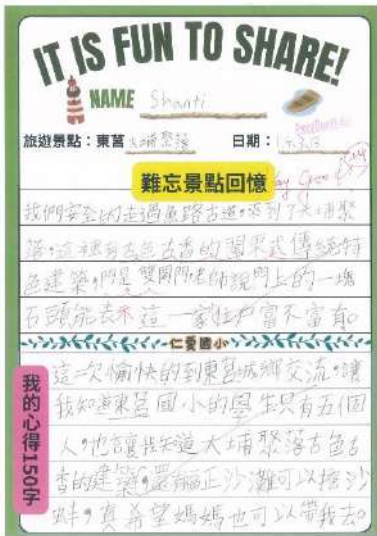 IT IS FUN TO SHARE!
NAME Shanti
旅遊景點：東莒大埔聚落 日期：
難忘景點回憶
我們安全的走過魚路古道，來到了大埔聚
落，這裡有古色古香的閩東式傳統特
色建築，門是雙開門，老師說門上的一塊
石頭能表示這一家住戶富不富有。
仁愛國小
我的心得150字
這一次愉快的到東莒城鄉交流，讓
我知道東莒國小的學生只有五個
人，也讓我知道大埔聚落古色古
香的建築，還有正沙灘可以撿沙
蚌，真希望媽媽也可以帶我去。